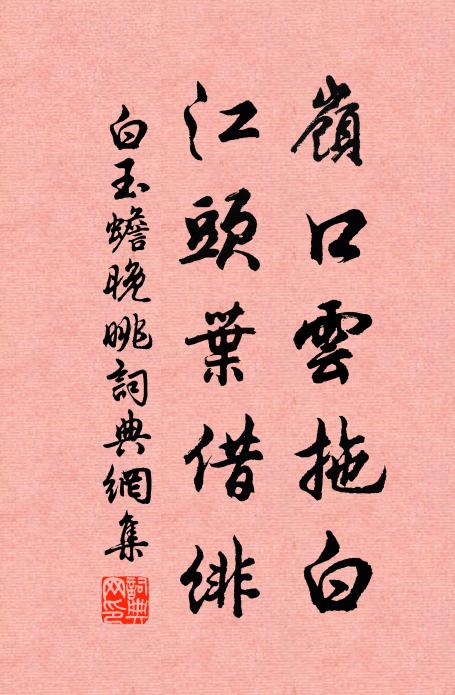 嶺口雲拖白
江頭葉借緋
白玉蟾晚眺詞典網集
詞典網印